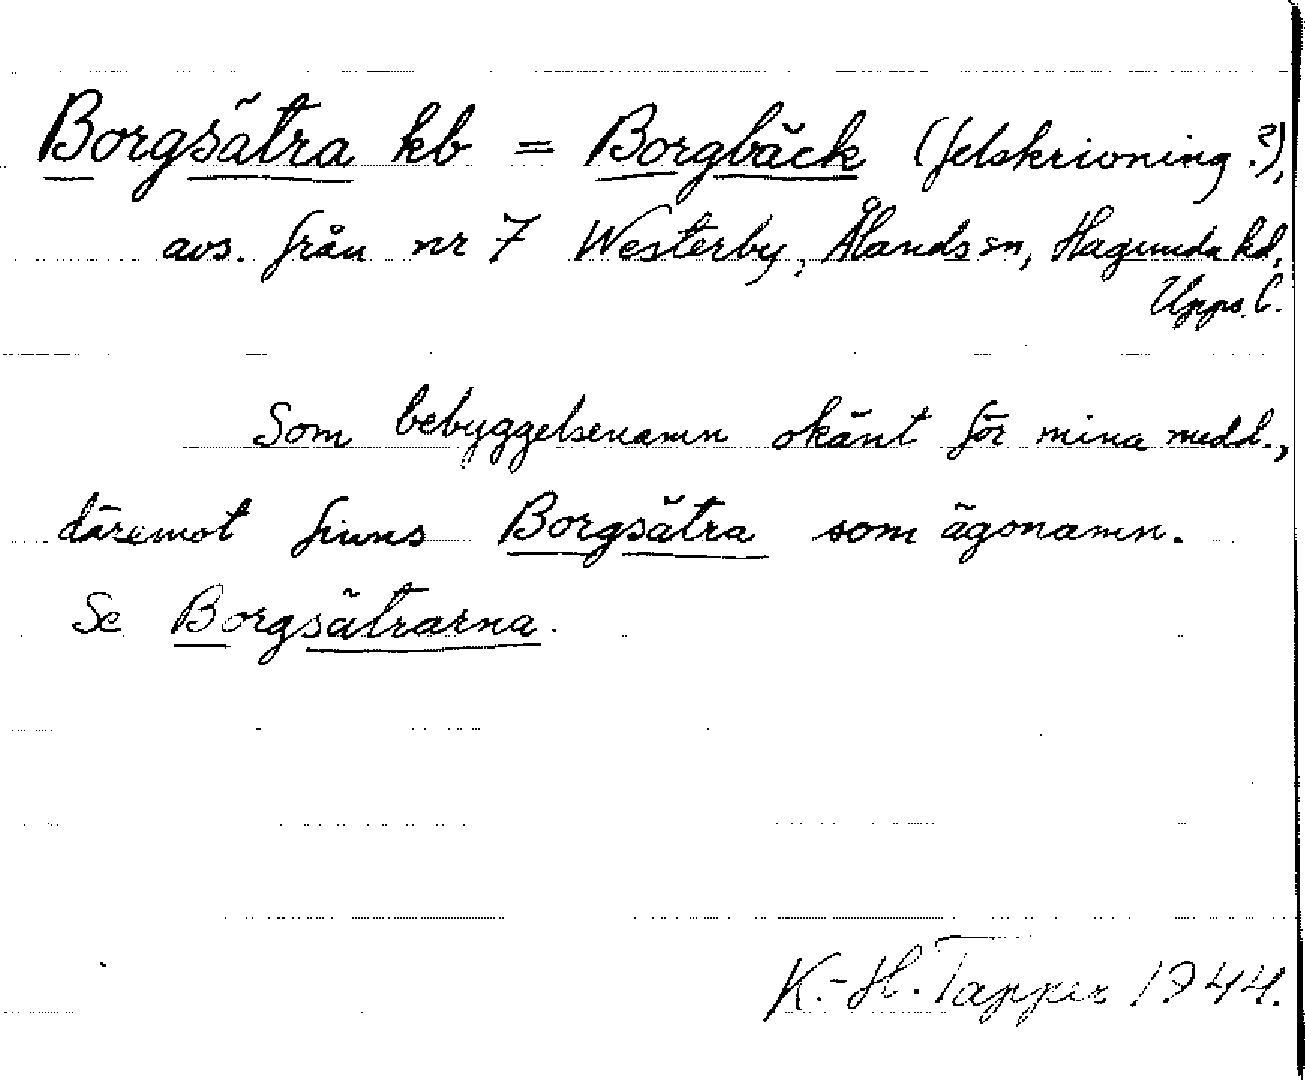 Borgsätra kb = Borgbäck (felskrivning?),
avs. från nr 7 Westerby, Ålands sn, Hagunda hd,
Upps. C.
Som bebyggelsenamn okänt för mina medd.,
däremot finns Borgsätra som ägonamn.
Se Borgsätrarna.
K.-H. Tapper 1944.